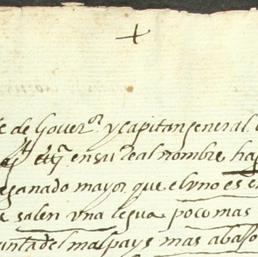 de Gouer.or y capitan general
en su real nombre ha
ganado mayor que el vno es en
salen vna legua poco mas
del malpays mas abaxo